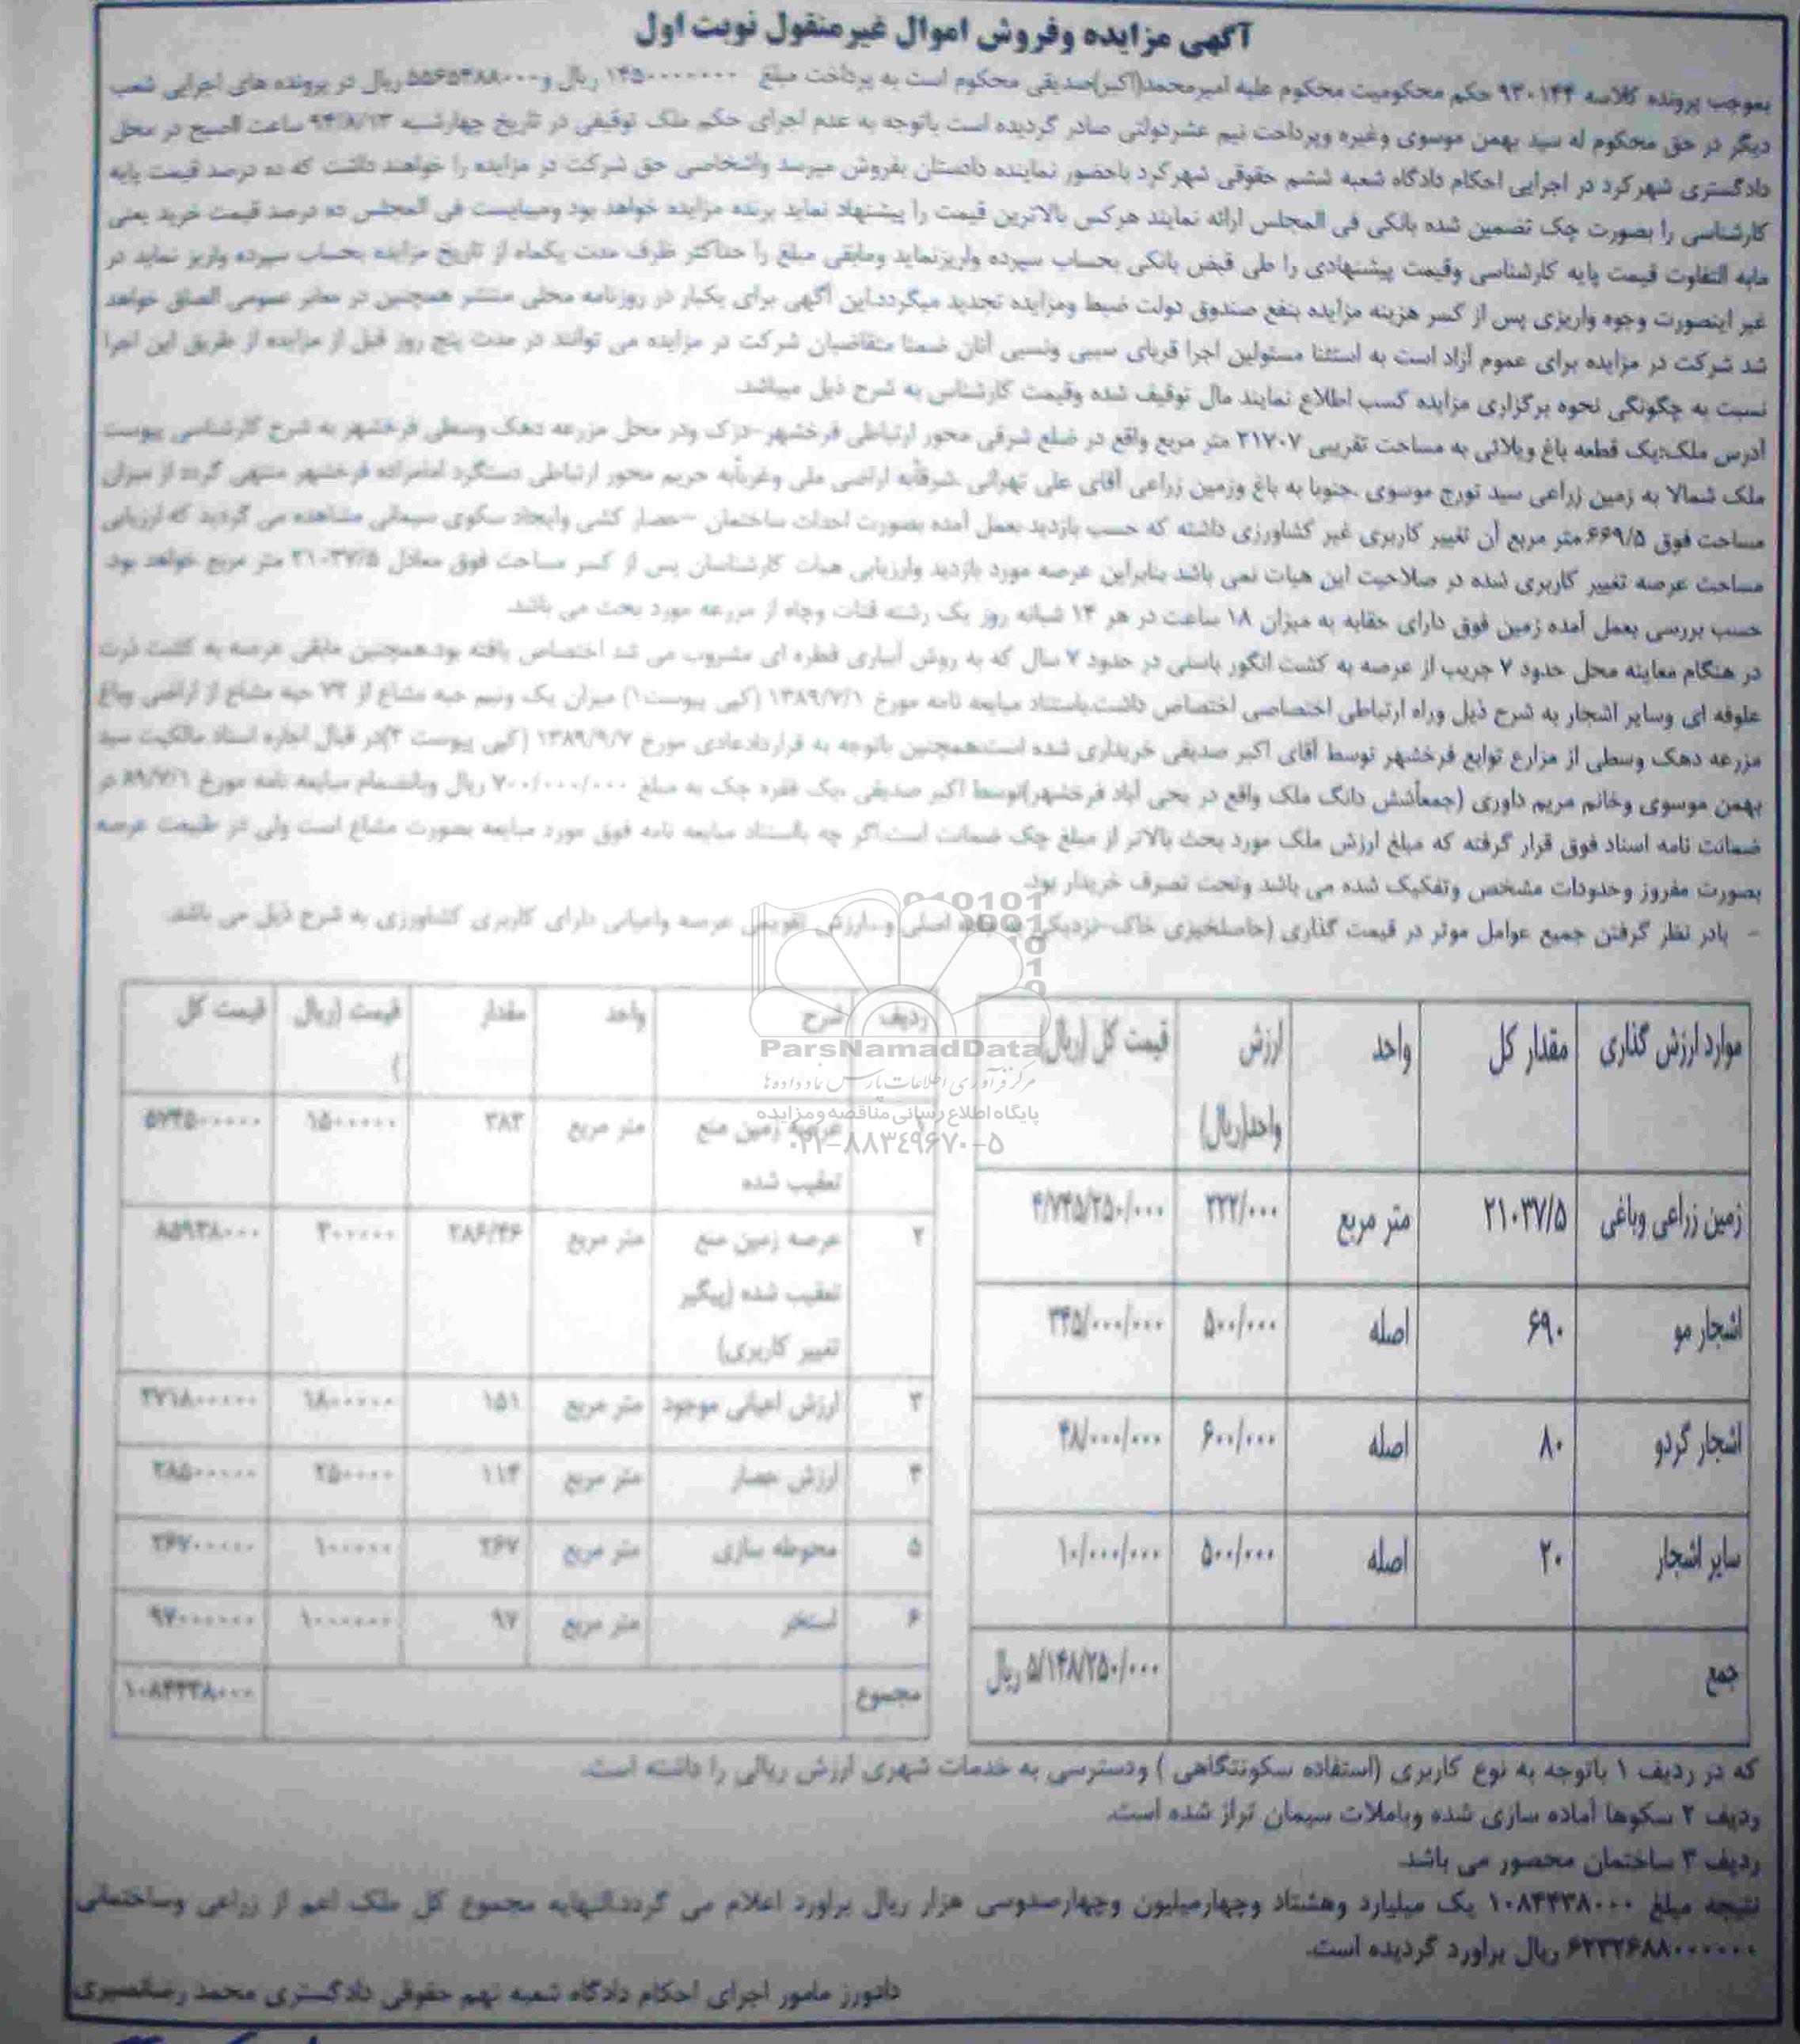 آگهی مزایده وفروش اموال غیرمنقول نوبت اول
بموجب پرونده کلاسه ۹۳۰۱۴۴ حکم محکومیت محکوم علیه امیرمحمد(اکبر)صدیقی محکوم است به پرداخت مبلغ ریال و ریال در پرونده های اجرایی شعب
دیگر در حق محکوم له سید بهمن موسوی وغیره وپرداخت نیم عشردولتی صادر گردیده است باتوجه به عدم اجرای حکم ملک توقیفی در تاریخ چهارشنبه ۹۴/۸/۱۳ ساعت الصبح در محل
دادگستری شهرکرد در اجرایی احکام دادگاه شعبه ششم حقوقی شهرکرد باحضور نماینده دادستان بفروش میرسد واشخاصی حق شرکت در مزایده را خواهند داشت که ده درصد قیمت پایه
کارشناسی را بصورت چک تضمین شده بانکی فی المجلس ارائه نمایند هرکس بالاترین قیمت را پیشنهاد نماید برنده مزایده خواهد بود ومیبایست فی المجلس ده درصد قیمت خرید یعنی
مابه التفاوت قیمت پایه کارشناسی وقیمت پیشنهادی را طی قبض بانکی بحساب سپرده واریزنماید ومابقی مبلغ را حداکثر ظرف مدت یکماه از تاریخ مزایده بحساب سپرده واریز نماید در
غیر اینصورت وجوه واریزی پس از کسر هزینه مزایده بنفع صندوق دولت ضبط ومزایده تجدید میگردد.این آگهی برای یکبار در روزنامه محلی منتشر همچنین در معابر عمومی الصاق خواهد
شد شرکت در مزایده برای عموم آزاد است به استثنا مسئولین اجرا قربای سببی ونسبی آنان ضمنا متقاضیان شرکت در مزایده می توانند در مدت پنج روز قبل از مزایده از طریق این اجرا
نسبت به چگونگی نحوه برگزاری مزایده کسب اطلاع نمایند مال توقیف شده وقیمت کارشناس به شرح ذیل میباشد.
آدرس ملک:یک قطعه باغ ویلائی به مساحت تقریبی ۲۱۷۰۷ متر مربع واقع در ضلع شرقی محور ارتباطی فرخشهر-دزک ودر محل مزرعه دهک وسطی فرخشهر به شرح کارشناسی پیوست
ملک شمالا به زمین زراعی سید تورج موسوی .جنوبا به باغ وزمین زراعی آقای علی تهرانی .شرقابه اراضی ملی وغربابه حریم محور ارتباطی دستگرد امامزاده فرخشهر منتهی گردد از میزان
مساحت فوق ۶۶۹/۵ متر مربع آن تغییر کاربری غیر کشاورزی داشته که حسب بازدید بعمل آمده بصورت احداث ساختمان -حصار کشی وایجاد سکوی سیمانی مشاهده می گردید که ارزیابی
مساحت عرصه تغییر کاربری شده در صلاحیت این هیات نمی باشد بنابراین عرصه مورد بازدید وارزیابی هیات کارشناسان پس از کسر مساحت فوق معادل ۲۱۰۳۷/۵ متر مربع خواهد بود
حسب بررسی بعمل آمده زمین فوق دارای حقابه به میزان ۱۸ ساعت در هر ۱۴ شبانه روز یک رشته قنات وچاه از مزرعه مورد بحث می باشد.
در هنگام معاینه محل حدود ۷ جریب از عرصه به کشت انگور یاسنی در حدود ۷ سال که به روش آبیاری قطره ای مشروب می شد اختصاص یافته بود.همچنین مابقی عرصه به کشت ذرت
علوفه ای وسایر اشجار به شرح ذیل وراه ارتباطی اختصاصی اختصاص داشت.باستناد مبایعه نامه مورخ ۱۳۸۹/۷/۱ (کپی پیوست۱) میزان یک ونیم حبه مشاع از ۷۲ حبه مشاع از اراضی وباغ
مزرعه دهک وسطی از مزارع توابع فرخشهر توسط آقای اکبر صدیقی خریداری شده است.همچنین باتوجه به قراردادعادی مورخ ۱۳۸۹/۹/۷ (کپی پیوست ۲)در قبال اجاره اسناد مالکیت سید
بهمن موسوی وخانم مریم داوری (جمعاشش دانگ ملک واقع در یحی آباد فرخشهر)توسط اکبر صدیقی .یک فقره چک به مبلغ ۷۰۰/۰۰۰/۰۰۰ ریال وبانضمام مبایعه نامه مورخ ۸۹/۷/۱ در
ضمانت نامه اسناد فوق قرار گرفته که مبلغ ارزش ملک مورد بحث بالاتر از مبلغ چک ضمانت است.اگر چه بااستناد مبایعه نامه فوق مورد مبایعه بصورت مشاع است ولی در طبیعت عرصه
بصورت مفروز وحدودات مشخص وتفکیک شده می باشد وتحت تصرف خریدار بود.
- بادر نظر گرفتن جمیع عوامل موثر در قیمت گذاری (حاصلخیزی خاک-نزدیکی اصلی و..ارزش تقویض عرصه واعیانی دارای کاربری کشاورزی به شرح ذیل می باشد.
موارد ارزش گذاری مقدار کل واحد ارزش واحد(ریال) قیمت کل (ریال)
زمین زراعی وباغی ۲۱۰۳۷/۵ متر مربع ۲۲۲/۰۰۰ ۴/۷۴۵/۲۵۰/۰۰۰
اشجار مو ۶۹۰ اصله ۵۰۰/۰۰۰ ۳۴۵/۰۰۰/۰۰۰
اشجار گردو ۸۰ اصله ۶۰۰/۰۰۰ ۴۸/۰۰۰/۰۰۰
سایر اشجار ۲۰ اصله ۵۰۰/۰۰۰ ۱۰/۰۰۰/۰۰۰
جمع ۵/۱۴۸/۲۵۰/۰۰۰ ریال
ردیف شرح واحد مقدار قیمت (ریال) قیمت کل
عرصه زمین منع تعقیب شده متر مربع ۳۸۳
۲ عرصه زمین منع تعقیب شده (پیگیر تغییر کاربری) متر مربع ۲۸۶/۴۶
۳ ارزش اعیانی موجود متر مربع ۱۵۱
۴ ارزش حصار متر مربع ۱۱۴
۵ محوطه سازی متر مربع ۲۶۷
۶ استخر متر مربع ۹۷
مجموع
ParsNamadData
مرکز فرآوری اطلاعات پارس نماد داده ها
پایگاه اطلاع رسانی مناقصه و مزایده
۰۲۱-۸۸۳۴۹۶۷۰-۵
که در ردیف ۱ باتوجه به نوع کاربری (استفاده سکونتگاهی ) ودسترسی به خدمات شهری ارزش ریالی را داشته است.
ردیف ۲ سکوها آماده سازی شده وباملات سیمان تراز شده است.
ردیف ۳ ساختمان محصور می باشد.
نتیجه مبلغ ۱۰۸۴۴۳۸۰۰۰ یک میلیارد وهشتاد وچهارمیلیون وچهارصدوسی هزار ریال براورد اعلام می گردد.النهایه مجموع کل ملک اعم از زراعی وساختمانی
ریال براورد گردیده است.
دادورز مامور اجرای احکام دادگاه شعبه نهم حقوقی دادگستری محمد رضانصیری